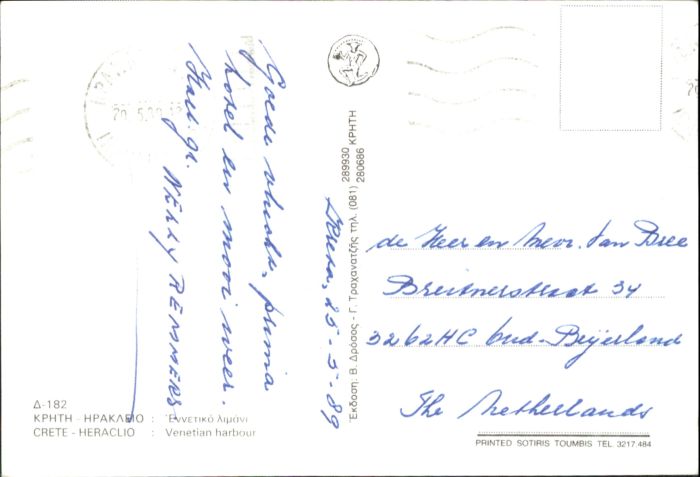 Kreta, 25-5-89
Goede vlucht, prima
hotel en mooi weer.
Hart. gr.
NELLY REMMERS
de Heer en Mevr. Van Bree
Breitnerstraat 34
3262HC Oud-Beijerland
The Netherlands
289930 ΚΡΗΤΗ
Έκδοση - Β. Δρόσος - Γ. Τραχανατζής τηλ. (081) 280686
Δ-182
ΚΡΗΤΗ - ΗΡΑΚΛΕΙΟ : Έννετικό λιμάνι
CRETE - HERACLIO : Venetian harbour
PRINTED SOTIRIS TOUMBIS TEL 3217.484